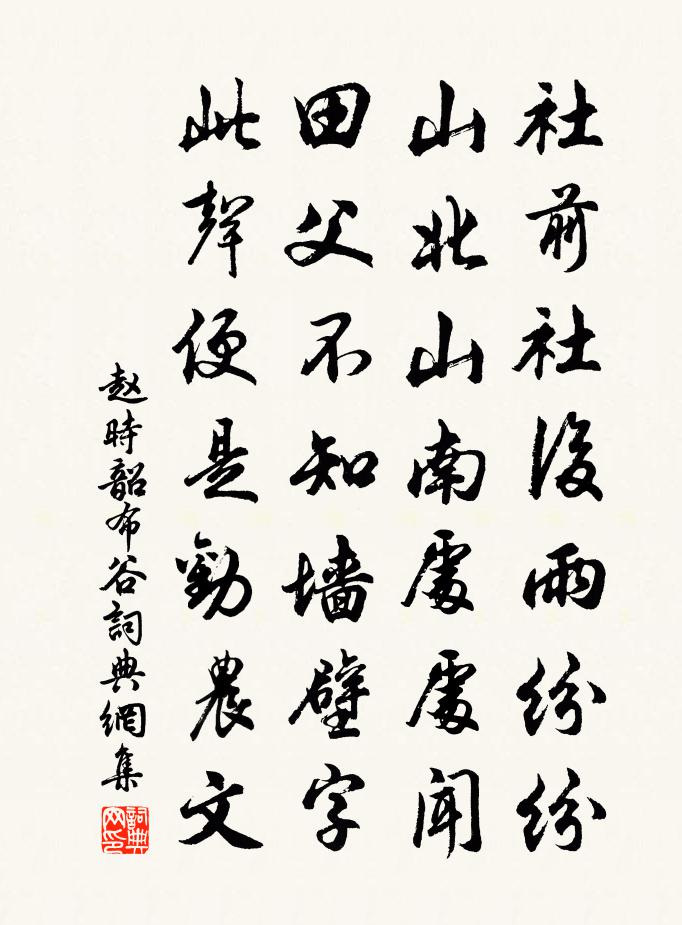 社前社後雨紛紛
山北山南處處聞
田父不知墙壁字
此聲便是勸農文
赵時韶布谷詞典網集
詞典
网印